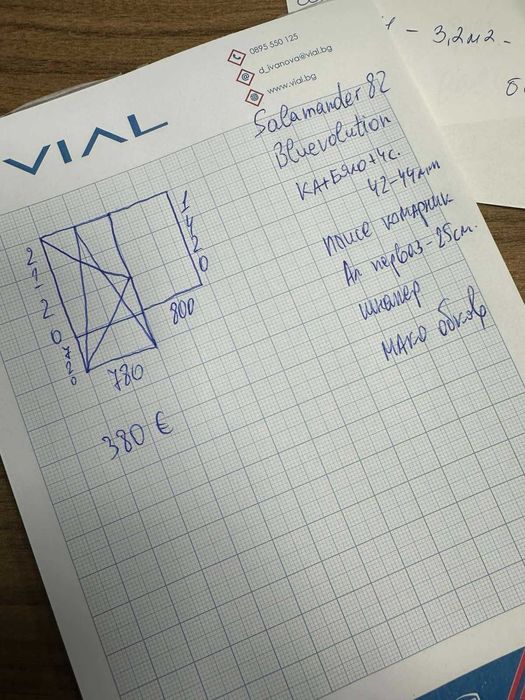 0895 550 125
d_ivanova@vial.bg
www.vial.bg
VIAL
- 3,2м2 -
Salamander 82
Bluevolution
КА+Бяло+4с.
42-44мм
плисе комарник
Ал перваз - 25см.
шнапер
МАКО обков
2120
1420
800
780
380 €